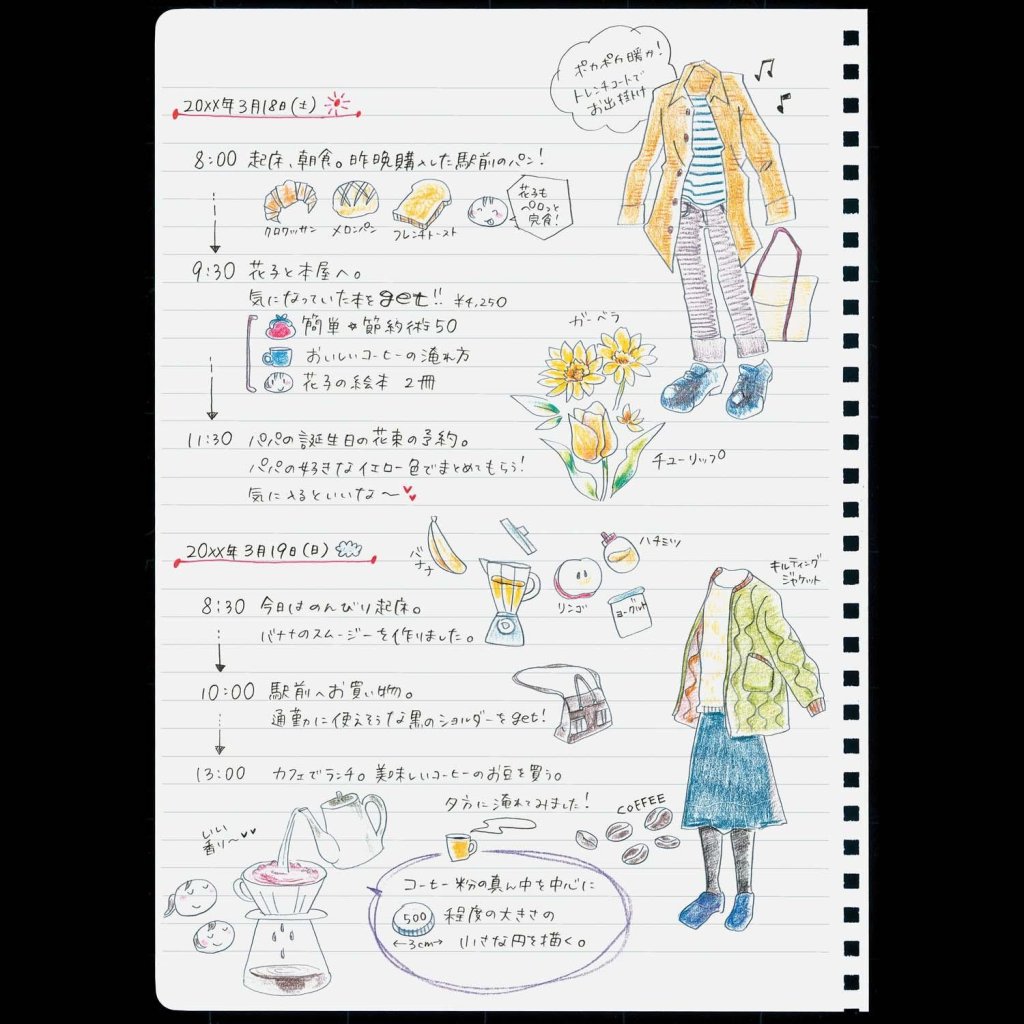 20XX年3月18日(土)
ポカポカ暖か!
トレンチコートで
お出掛け
8:00 起床、朝食。昨晩購入した駅前のパン!
クロワッサン メロンパン フレンチトースト
花子も
ペロっと
完食!
9:30 花子と本屋へ。
気になっていた本をget!! ¥4,250
簡単★節約術50
おいしいコーヒーの淹れ方
花子の絵本 2冊
ガーベラ
チューリップ
11:30 パパの誕生日の花束の予約。
パパの好きなイエロー色でまとめてもらう!
気に入るといいな〜
20XX年3月19日(日)
バナナ
ハチミツ
リンゴ
ヨーグルト
キルティング
ジャケット
8:30 今日はのんびり起床。
バナナのスムージーを作りました。
10:00 駅前へお買い物。
通勤に使えそうな黒のショルダーをget!
13:00 カフェでランチ。美味しいコーヒーのお豆を買う。
夕方に淹れてみました!
COFFEE
いい
香り〜
コーヒー粉の真ん中を中心に
500 程度の大きさの
←3cm→ 小さな円を描く。